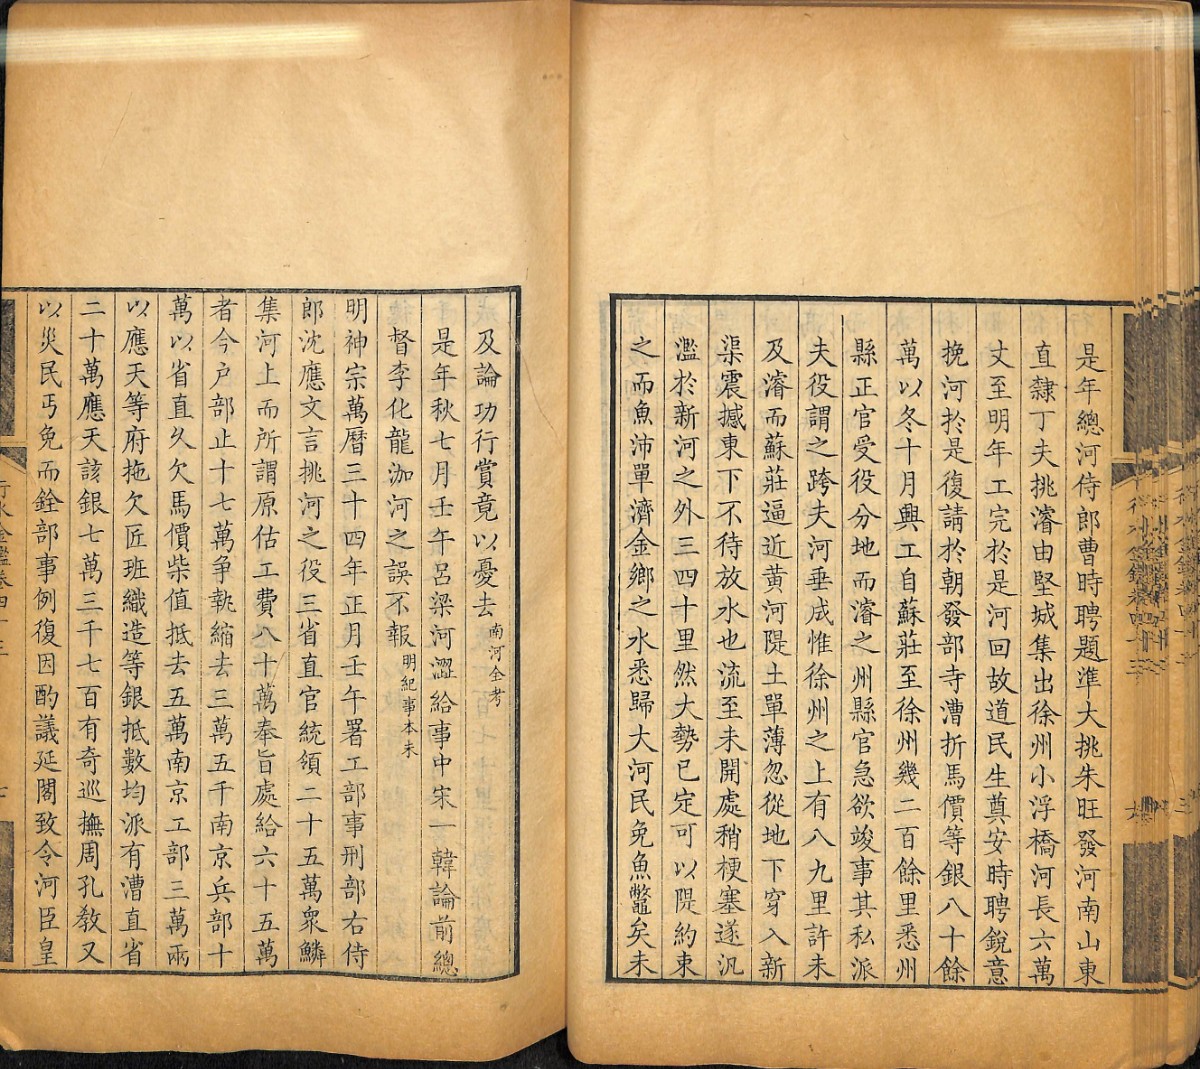 是年總河侍郎曹時聘題準大挑朱旺發河南山東
直隸丁夫挑濬由堅城集出徐州小浮橋河長六萬
丈至明年工完於是河回故道民生奠安時聘銳意
挽河於是復請於朝發部寺漕折馬價等銀八十餘
萬以冬十月興工自蘇莊至徐州幾二百餘里悉州
縣正官受役分地而濬之州縣官急欲竣事其私派
夫役謂之跨夫河垂成惟徐州之上有八九里許未
及濬而蘇莊逼近黃河隄土單薄忽從地下穿入新
渠震撼東下不待放水也流至未開處稍梗塞遂汎
濫於新河之外三四十里然大勢已定可以隄約束
之而魚沛單濟金鄉之水悉歸大河民免魚鼈矣未
及論功行賞竟以憂去南河全考
是年秋七月壬午呂梁河澀給事中宋一韓論前總
督李化龍泇河之誤不報明紀事本末
明神宗萬曆三十四年正月壬午署工部事刑部右侍
郎沈應文言挑河之役三省直官統領二十五萬衆鱗
集河上而所謂原估工費八十萬奉旨處給六十五萬
者今户部止十七萬爭執縮去三萬五千南京兵部十
萬以省直久欠馬價柴值抵去五萬南京工部三萬兩
以應天等府拖欠匠班織造等銀抵數均派有漕直省
二十萬應天該銀七萬三千七百有奇巡撫周孔教又
以災民丐免而銓部事例復因酌議延閣致令河臣皇
行水金鑑卷四十三